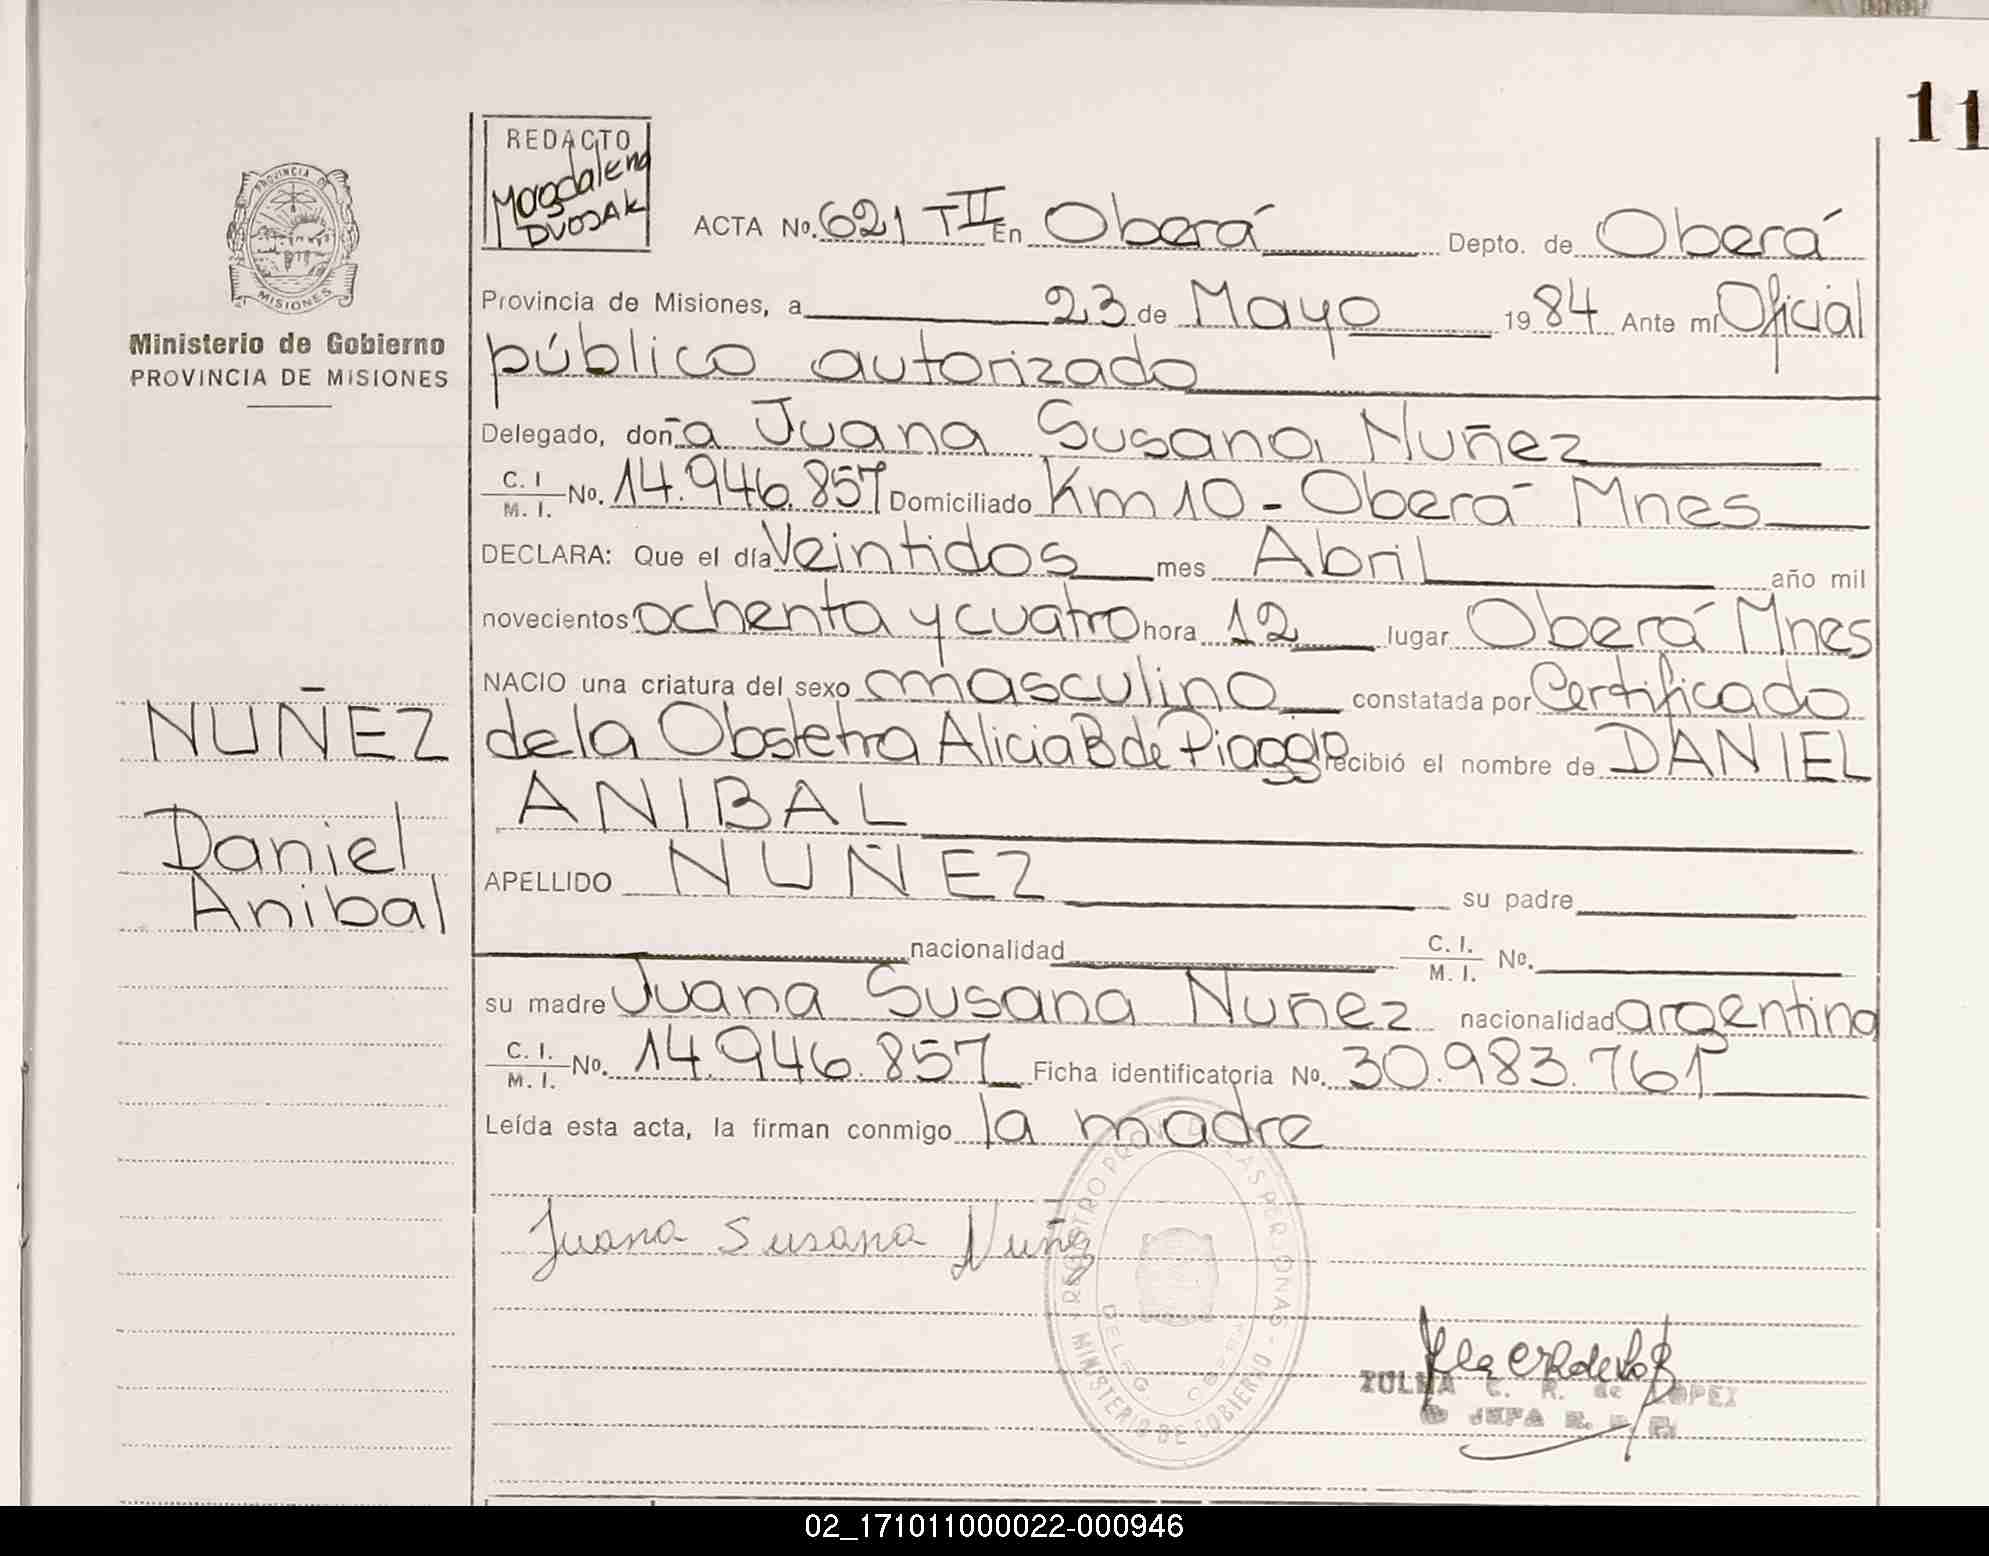 11
REDACTO
Magdalena
DVOSAK
PROVINCIA DE
MISIONES
Ministerio de Gobierno
PROVINCIA DE MISIONES
ACTA No. 621 TII En Oberá Depto. de Oberá
Provincia de Misiones, a 23 de Mayo 1984 Ante mí Oficial
público autorizado
Delegado, doña Juana Susana Nuñez
C. I / M. I. No. 14.946.857 Domiciliado Km 10 - Oberá Mnes
DECLARA: Que el día Veintidos mes Abril año mil
novecientos ochenta y cuatro hora 12 lugar Oberá Mnes
NACIO una criatura del sexo masculino constatada por Certificado
de la Obstetra Alicia B de Piaggio recibió el nombre de DANIEL
ANIBAL
APELLIDO NUÑEZ su padre
nacionalidad C. I. / M. I. No.
su madre Juana Susana Nuñez nacionalidad argentina
C. I. / M. I. No. 14.946.857 Ficha identificatoria No. 30.983.761
Leída esta acta, la firman conmigo la madre
NUÑEZ
Daniel
Anibal
Juana Susana Nuñez
MINISTERIO DE GOBIERNO
ZULMA C. R. de LOPEZ
JEFA
02_171011000022-000946